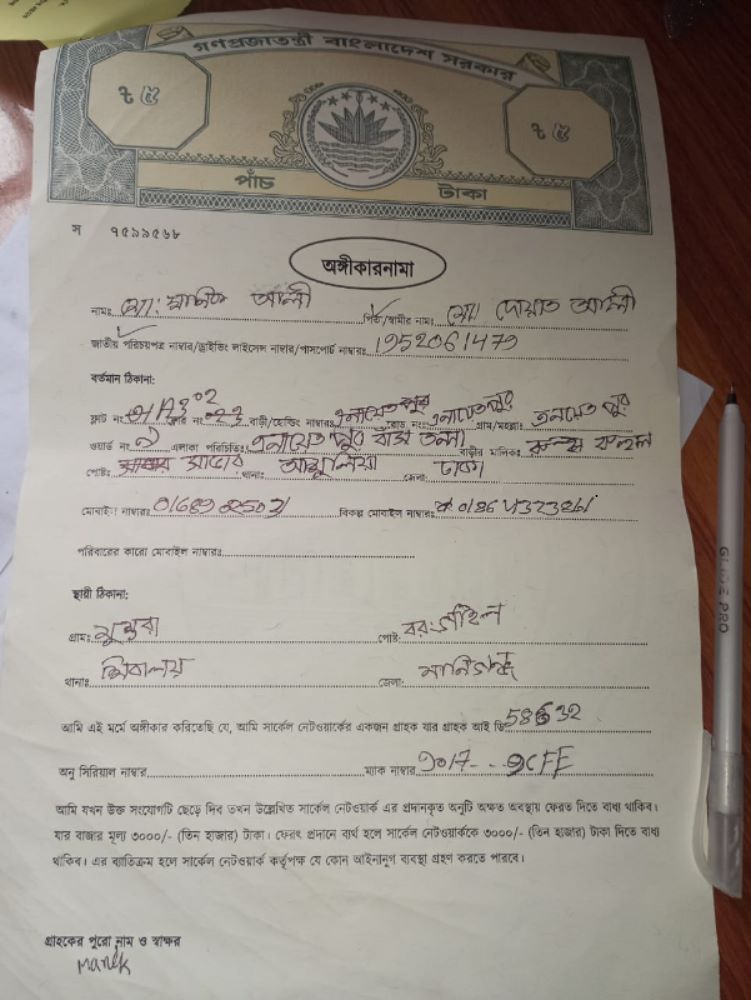 গণপ্রজাতন্ত্রী বাংলাদেশ সরকার
৳ ৫ ৳ ৫
পাঁচ টাকা
স ৭৫৯৯৫৬৮
অঙ্গীকারনামা
নামঃ মোঃ মানিক আলী পিতা/স্বামীর নামঃ মোঃ দোয়াত আলী
জাতীয় পরিচয়পত্র নাম্বার/ড্রাইভিং লাইসেন্স নাম্বার/পাসপোর্ট নাম্বারঃ 1952061479
বর্তমান ঠিকানা:
ফ্লাট নং বাড়ী/হোল্ডিং নাম্বারঃ এনায়েতপুর রোড নংঃ এনায়েতপুর গ্রাম/মহল্লাঃ এনায়েতপুর
ওয়ার্ড নং ৯ এলাকা পরিচিতিঃ এনায়েতপুর বাঁশ তলা বাড়ীর মালিকঃ
পোষ্টঃ সাভার থানাঃ আশুলিয়া জেলা: ঢাকা
মোবাইল নাম্বারঃ বিকল্প মোবাইল নাম্বারঃ
পরিবারের কারো মোবাইল নাম্বারঃ
স্থায়ী ঠিকানা:
গ্রামঃ পোষ্ট:
থানাঃ শিবালয় জেলা: মানিকগঞ্জ
আমি এই মর্মে অঙ্গীকার করিতেছি যে, আমি সার্কেল নেটওয়ার্কের একজন গ্রাহক যার গ্রাহক আই ডি 58632
অনু সিরিয়াল নাম্বার ম্যাক নাম্বার 9017---9CFE
আমি যখন উক্ত সংযোগটি ছেড়ে দিব তখন উল্লেখিত সার্কেল নেটওয়ার্ক এর প্রদানকৃত অনুটি অক্ষত অবস্থায় ফেরত দিতে বাধ্য থাকিব।
যার বাজার মূল্য ৩০০০/- (তিন হাজার) টাকা। ফেরৎ প্রদানে ব্যর্থ হলে সার্কেল নেটওয়ার্ককে ৩০০০/- (তিন হাজার) টাকা দিতে বাধ্য
থাকিব। এর ব্যতিক্রম হলে সার্কেল নেটওয়ার্ক কর্তৃপক্ষ যে কোন আইনানুগ ব্যবস্থা গ্রহণ করতে পারবে।
গ্রাহকের পুরো নাম ও স্বাক্ষর
Manik
GLIDE PRO